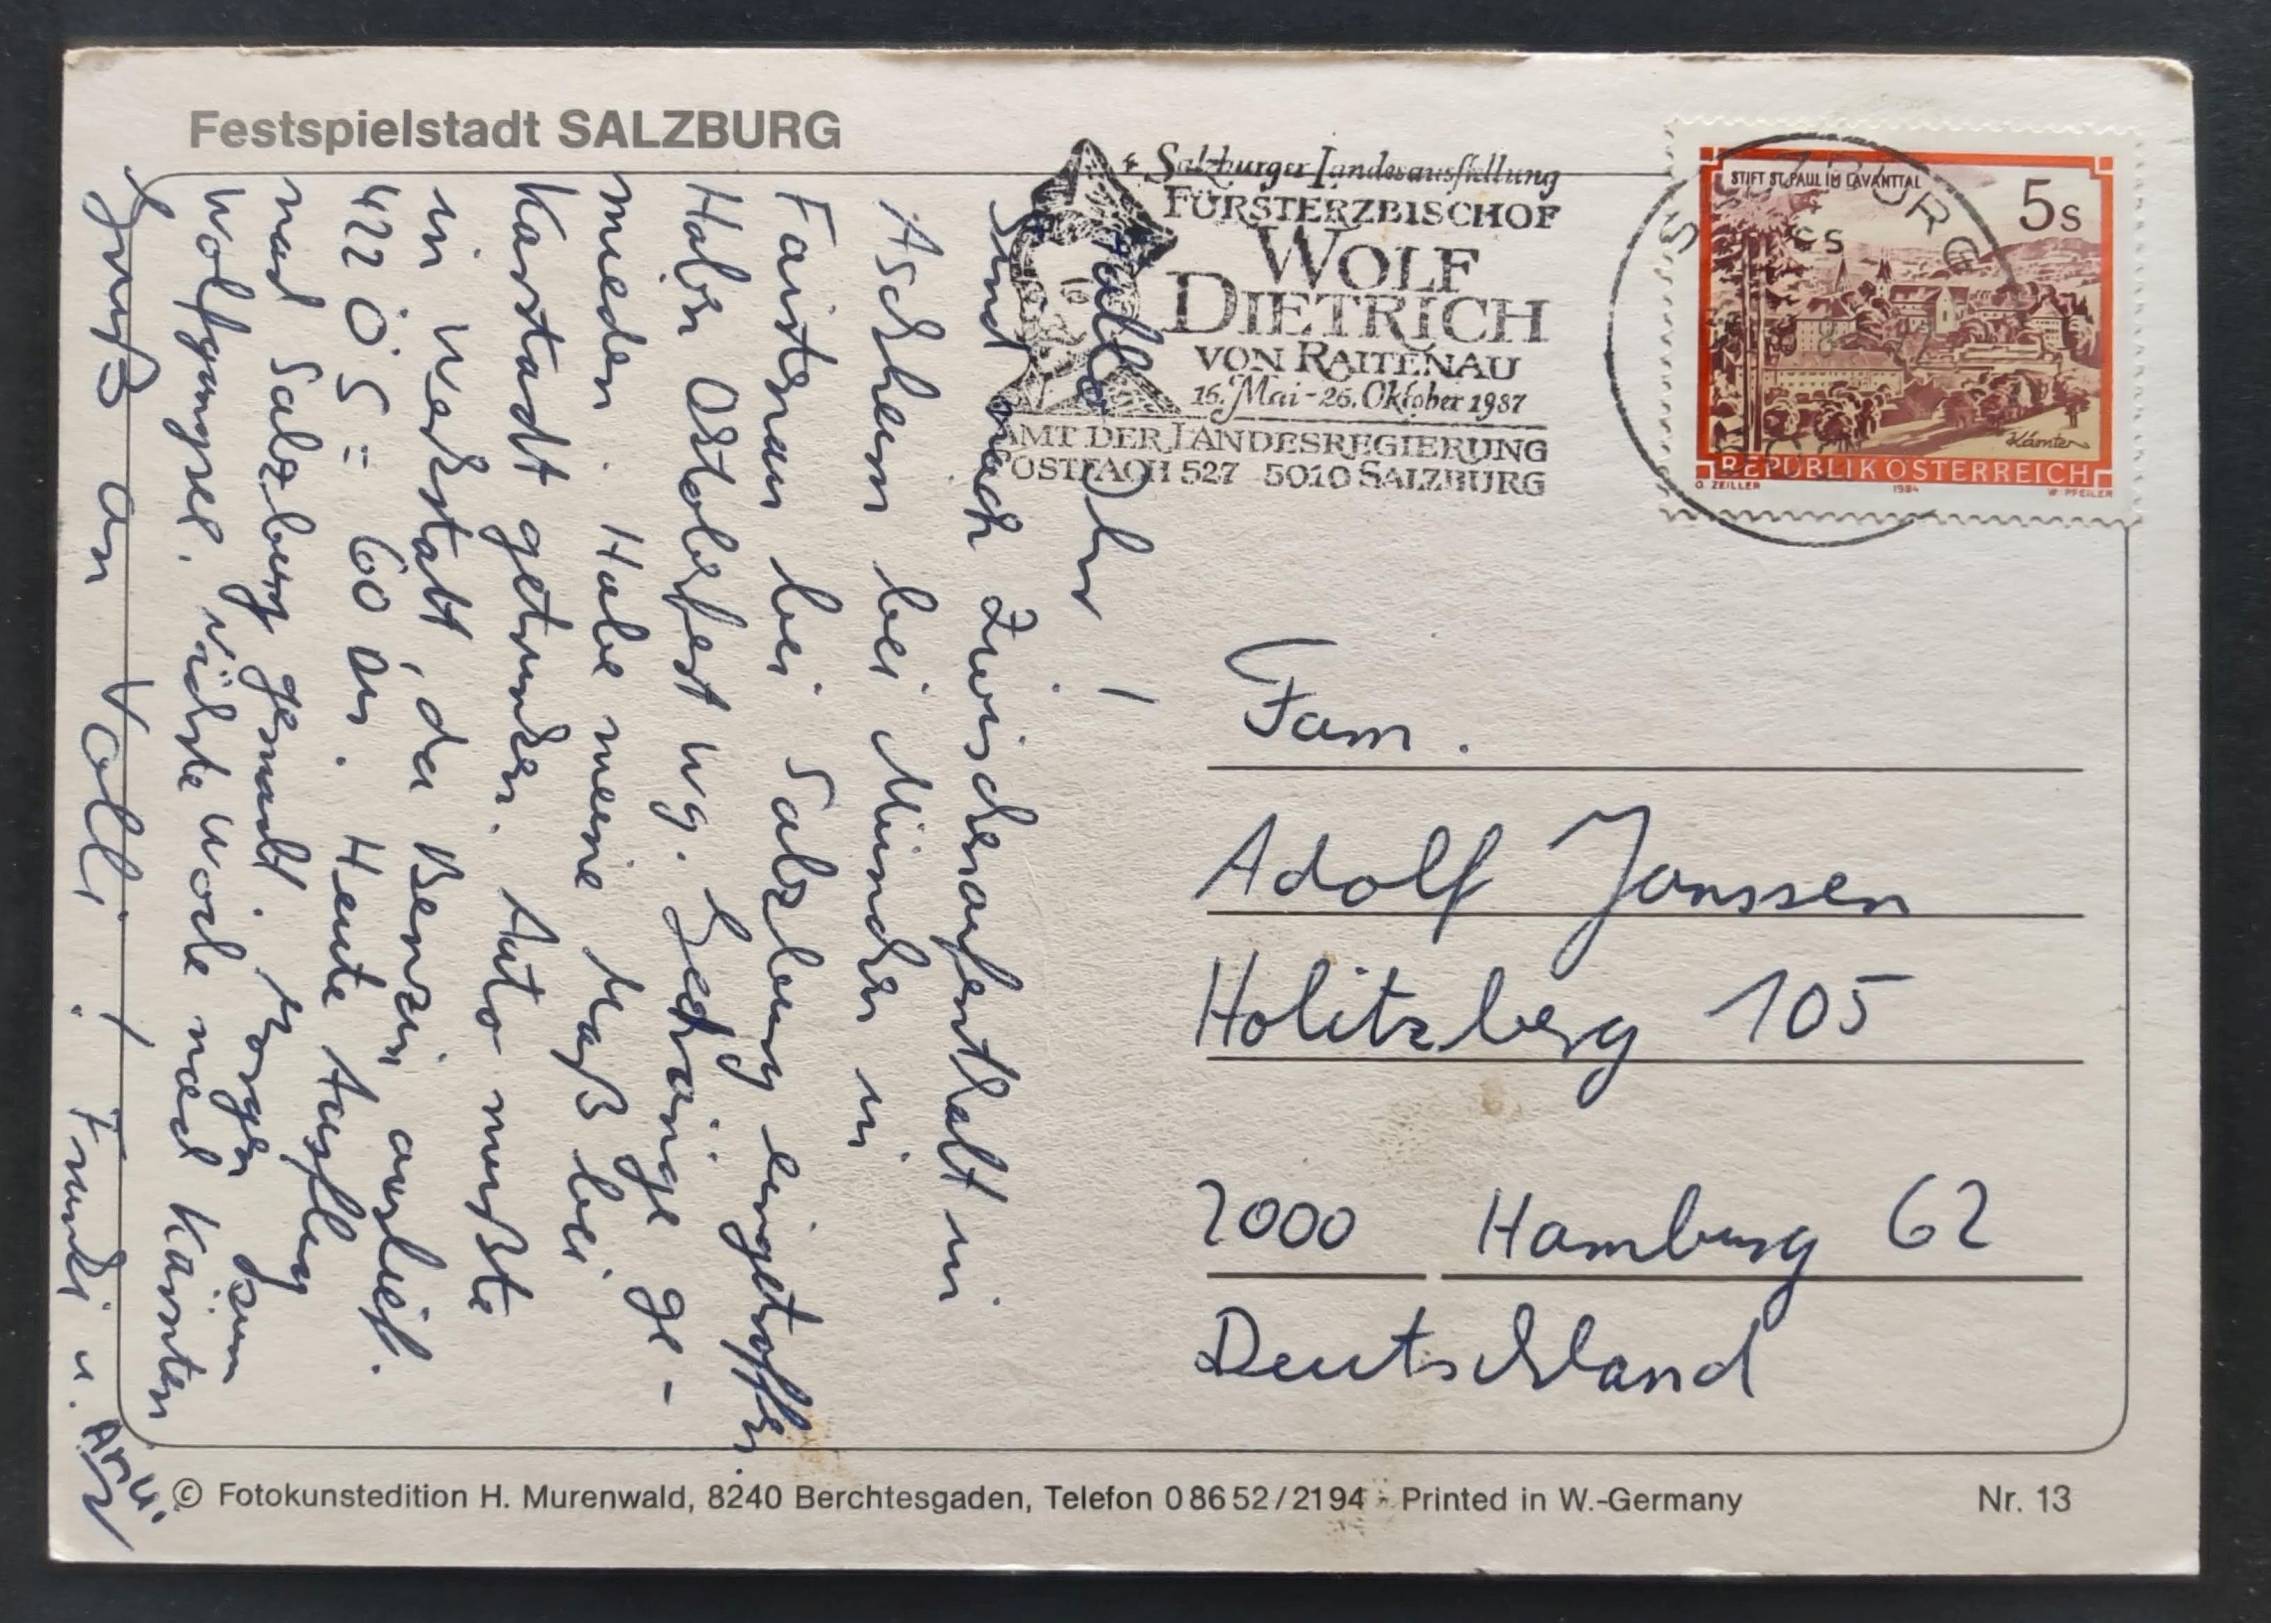 Festspielstadt SALZBURG
Salzburger Landesausstellung
FÜRSTERZBISCHOF
WOLF
DIETRICH
VON RAITENAU
16. Mai - 26. Oktober 1987
AMT DER LANDESREGIERUNG
POSTFACH 527 5010 SALZBURG
SALZBURG
STIFT ST. PAUL IM LAVANTTAL
5s
Kärnten
REPUBLIK ÖSTERREICH
O. ZEILLER 1984 W. PFEILER
Hallo Ihr !
Sind nach Zwischenaufenthalt in
Aschheim bei München in
bei Salzburg eingetroffen.
Haben Oktoberfest wg. Gedränge ge-
mieden. Habe meine Maß bei
Karstadt getrunken. Auto mußte
in Werkstatt, da Benzin auslief.
422 ÖS = 60 DM. Heute Ausflug
nach Salzburg gemacht. Morgen zum
Wolfgangsee. Nächste Woche nach Kärnten
Gruß an Volli ! Franki u.
Fam.
Adolf Janssen
Holitzberg 105
2000 Hamburg 62
Deutschland
© Fotokunstedition H. Murenwald, 8240 Berchtesgaden, Telefon 0 86 52 / 21 94 - Printed in W.-Germany Nr. 13